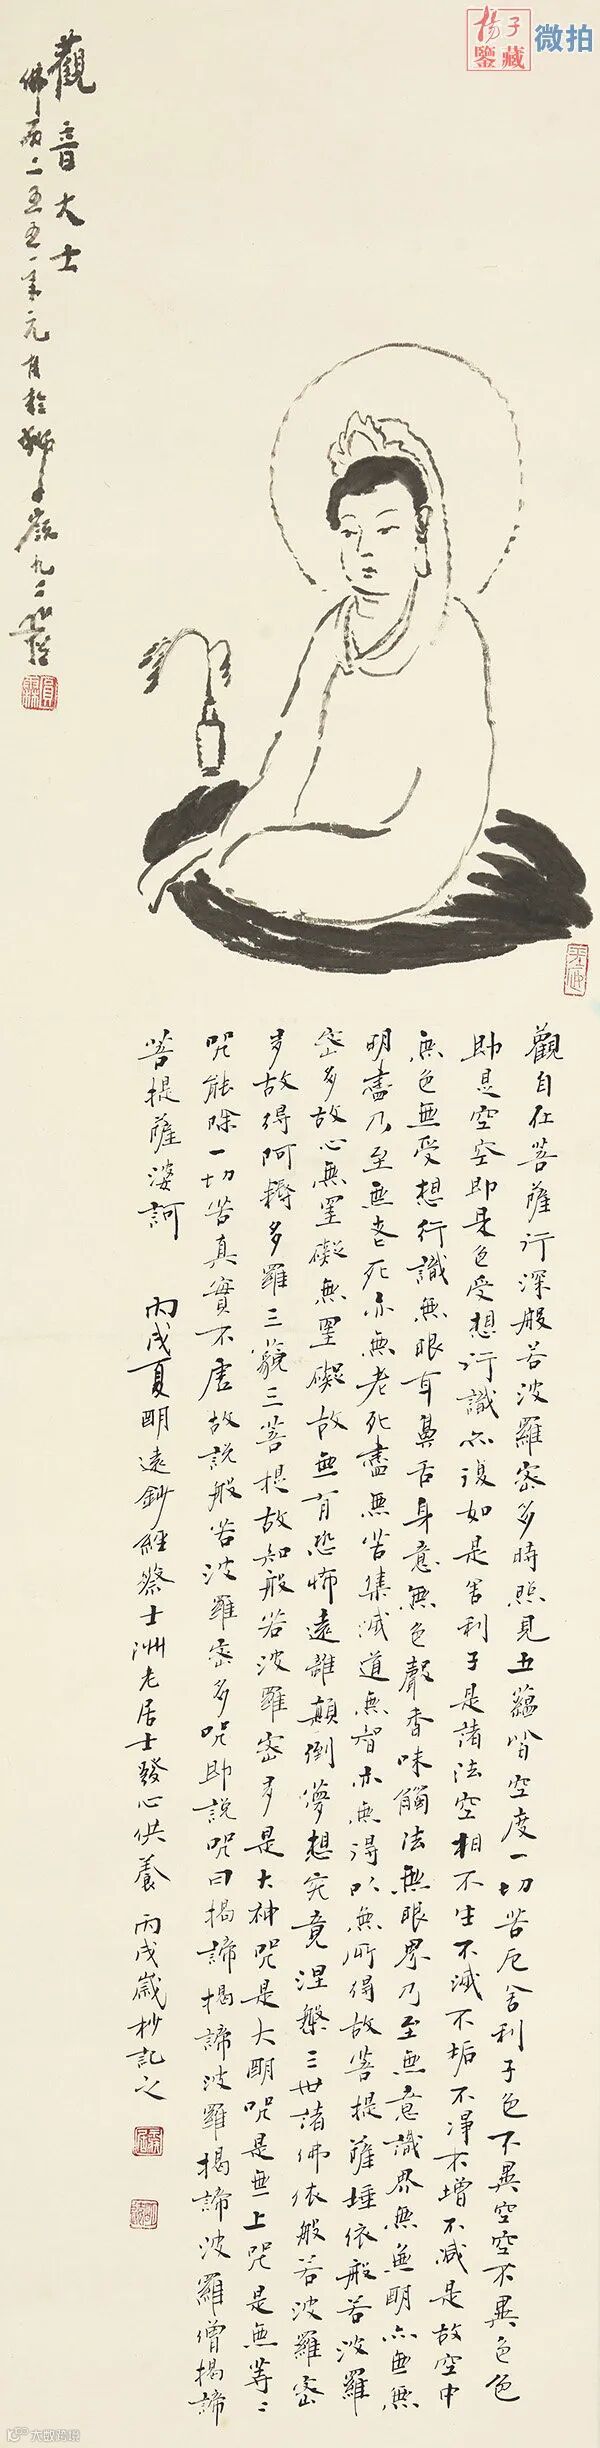 揚子
鑒藏
微拍
觀音大士
佛曆二五五一年元月於獅子巖九二
圓霖
觀自在菩薩行深般若波羅密多時照見五蘊皆空度一切苦厄舍利子色不異空空不異色色
即是空空即是色受想行識亦復如是舍利子是諸法空相不生不滅不垢不淨不增不減是故空中
無色無受想行識無眼耳鼻舌身意無色聲香味觸法無眼界乃至無意識界無無明亦無無
明盡乃至無老死亦無老死盡無苦集滅道無智亦無得以無所得故菩提薩埵依般若波羅
密多故心無罣礙無罣礙故無有恐怖遠離顛倒夢想究竟涅槃三世諸佛依般若波羅密
多故得阿耨多羅三藐三菩提故知般若波羅密多是大神咒是大明咒是無上咒是無等〻
咒能除一切苦真實不虛故說般若波羅密多咒即說咒曰揭諦揭諦波羅揭諦波羅僧揭諦
菩提薩婆訶 丙戌夏明遠鈔經蔡士洲老居士發心供養 丙戌歲杪記之
大数跨境